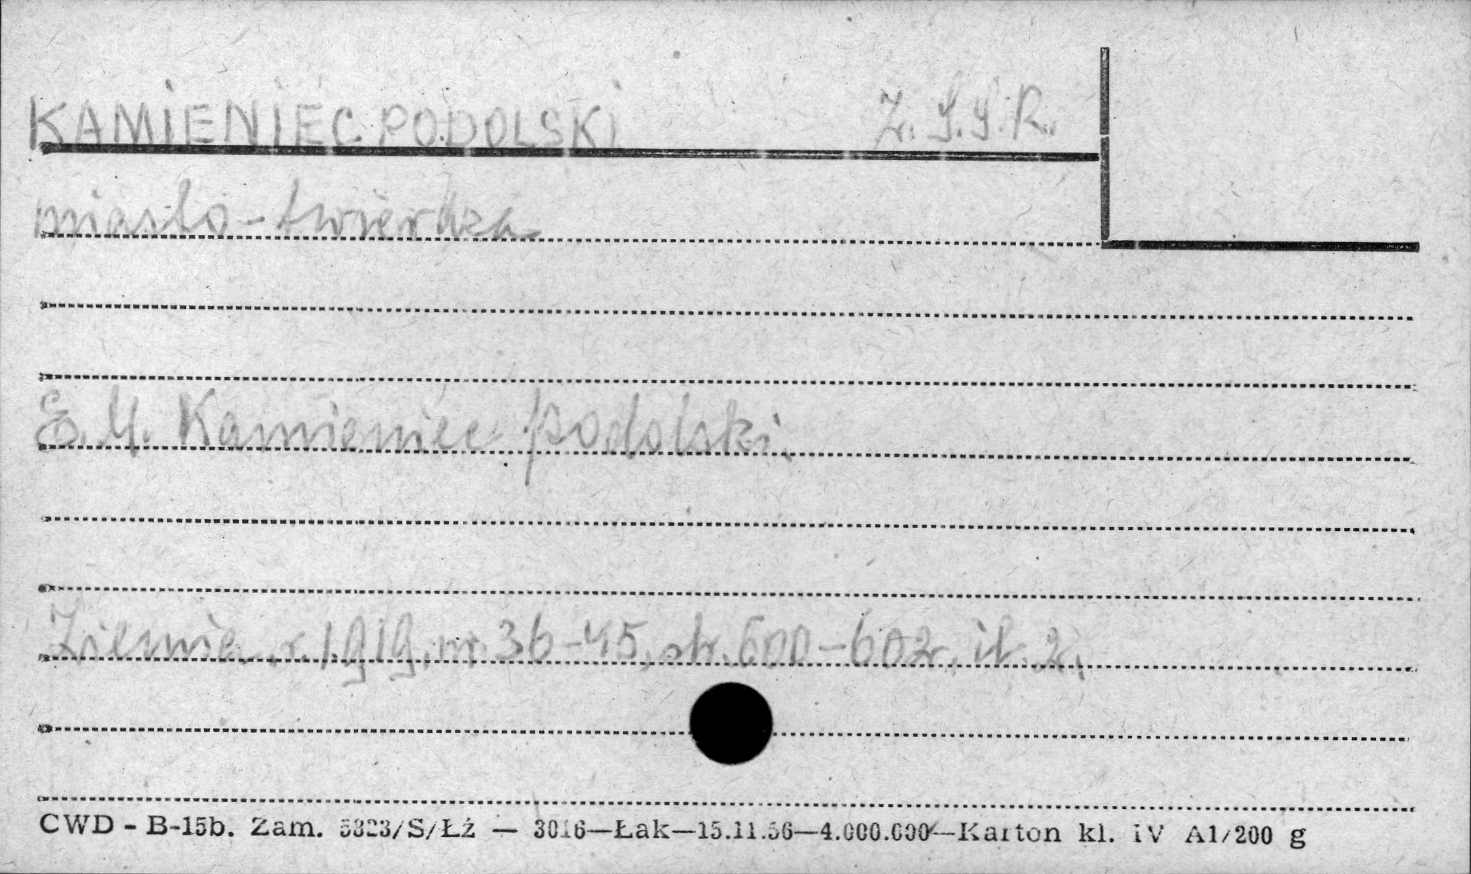 KAMIENIEC PODOLSKI Z.S.S.R.
miasto-twierdza
E.M. Kamieniec podolski.
Ziemia, r. 1919, nr 36-45, str. 600-602, il. 2.
CWD - B-15b. Zam. 5323/S/Łż — 3016—Łak—15.11.56—4.000.000—Karton kl. IV A1/200 g